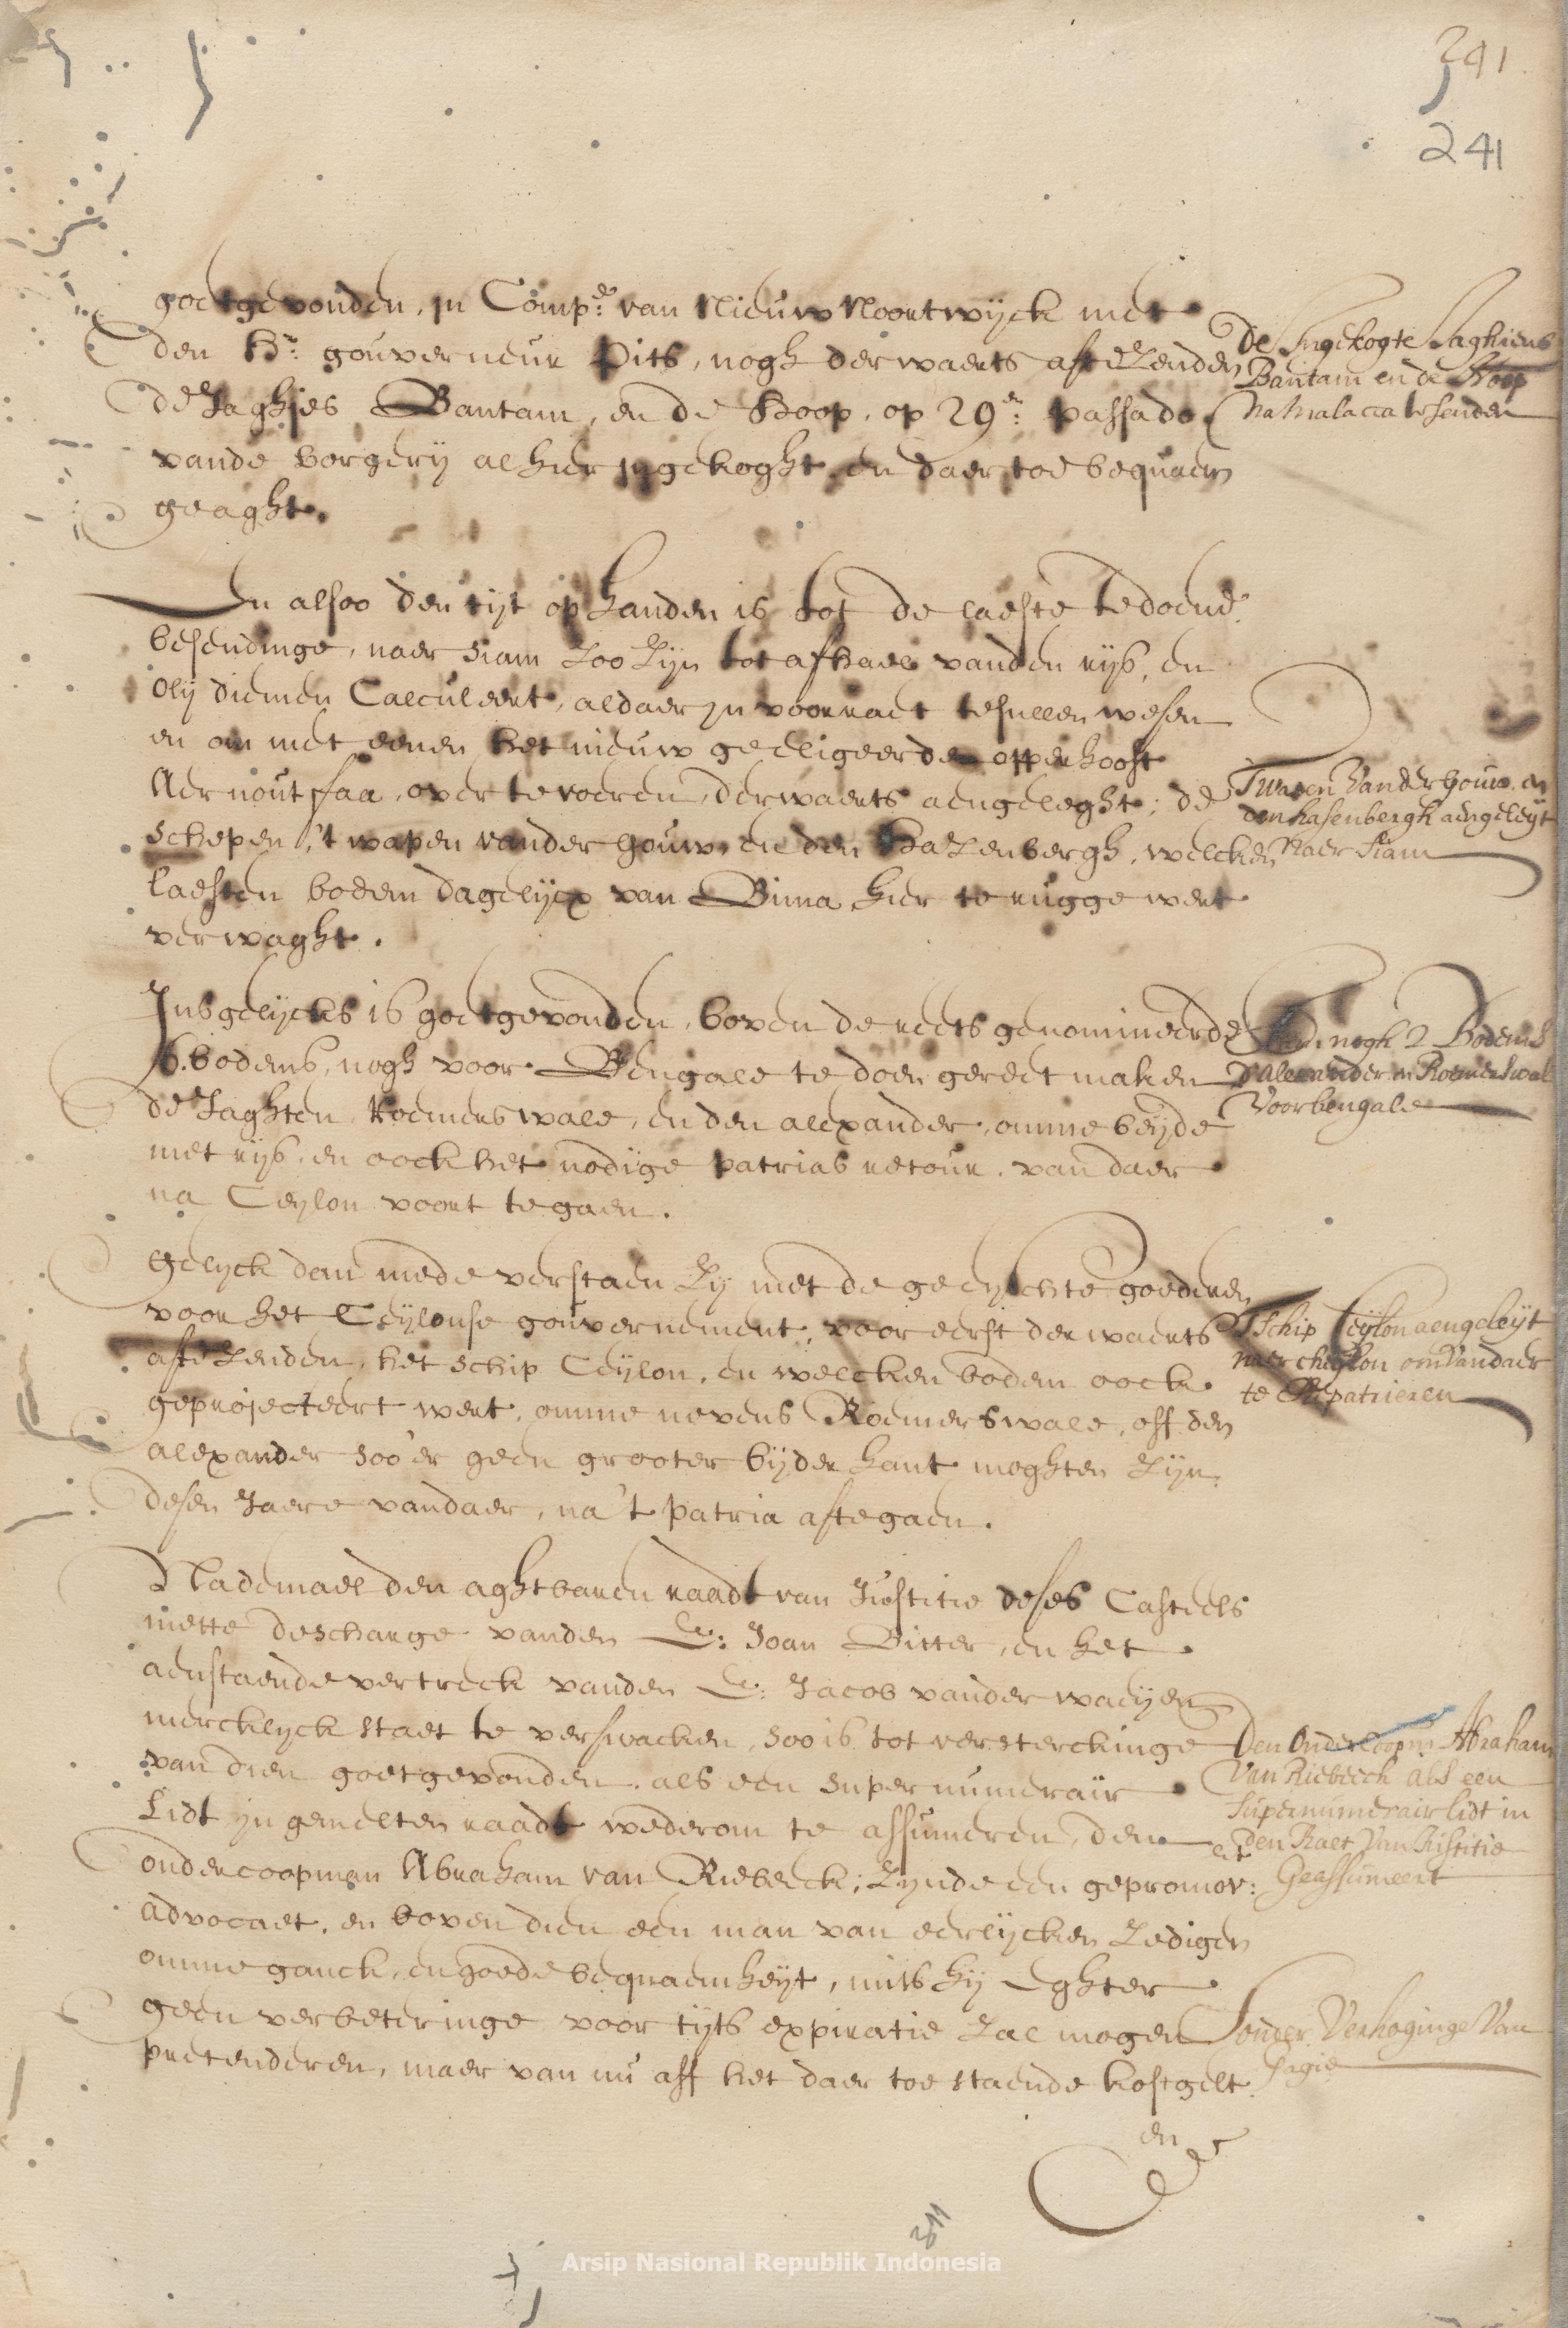 241
241
goetgevonden, in Comp:e van Nieuw Noortwijck met
den Hr: gouverneur Pits, nogh derwaerts afte Zenden
de Jaghjes Bantam, en de Hoop, op 29en: passado
vande borgerij alhier ingekoght, en daer toe bequaem
geaght.
De Ingekogte Jaghiens
Bantam en de Hoop
na Malacca te senden
En alsoo den tijt op handen is tot de laeste te doene
besendinge, naer Siam Zoo Zijn tot afhael vanden rijs, en
olij diemen Calculeert, aldaer in voorraet te sullen wesen
en om met eenen het nieuw geeligeerde opperhooft
Aernout faa, over te voeren, derwaerts aengeleght; de
schepen, 't wapen vander Gouw, en den HaZenbergh, welcken
laesten bodem dagelijcx van Bima hier te rugge wert
verwaght.
T wapen Vander Gouw, en
den hasenbergh aengeleyt
Naer Siam
Insgelijcks is goetgevonden, boven de reets genomineerde
6. bodems, nogh voor Bengale te doen gereet maken
de Jaghten Roemerswale, en den alexander, omme beijde
met rijs, en oock het nodige patrias retour, van daer
na Ceylon voort te gaen.
nogh 2 Bodems
D'Alexander en Romerswal
Voor bengale
Gelyck dan mede verstaen Zy met de geeyschte goederen
voor het Ceylonse gouvernement, voor eerst derwaerts
afte Zenden, het schip Ceylon, en welcken bodem oock
geprojecteert wert, omme nevens Roemerswale, off den
alexander soo'er geen grooter bijder hant moghten Zijn,
desen Jaere vandaer, na 't patria afte gaen.
T Schip Ceijlon aengeleijt
naer cheijlon om Vandaer
te Repatrieren
Nademael den aghtbaren raadt van Justitie deses Casteels
mette deschange vanden E: Joan Bitter, en het
aenstaende vertreck vanden E: Jacob vander waeijen
mercklyck staet te verswacken, soo is tot versterckinge
van dien goetgevonden, als een supernumerair
Lidt in gemelten raadt wederom te assumeren, den
ondercoopman Abraham van Riebeeck, Zynde een gepromov:
advocaet, en boven dien een man van eerlijcken Zedigen
omme ganck, en goede bequaemheyt, mits hij Eghter
geen verbeteringe voor tijts expiratie Zal mogen
pretenderen, maer van nu aff het daer toe staende kostgelt
Den Ondercoopm Abraham
Van Riebeeck als een
Supernumerair lidt in
den Raet Van Justitie
Geassumeert
Sonder Verhoginge Van
Gagie
en
311
Arsip Nasional Republik Indonesia